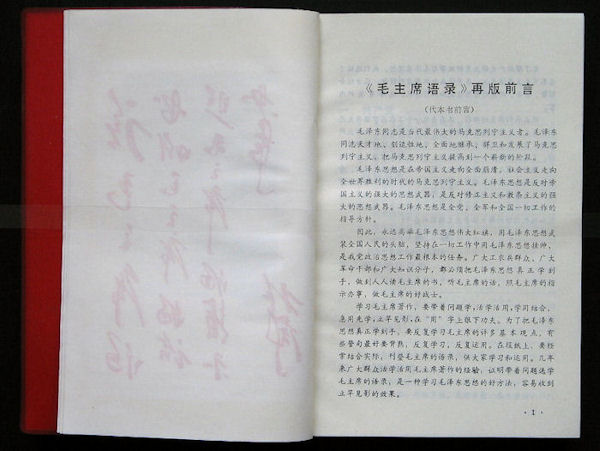 《毛主席语录》再版前言
（代本书前言）
毛泽东同志是当代最伟大的马克思列宁主义者。毛泽东
同志天才地、创造性地、全面地继承、捍卫和发展了马克思
列宁主义，把马克思列宁主义提高到一个崭新的阶段。
毛泽东思想是在帝国主义走向全面崩溃，社会主义走向
全世界胜利的时代的马克思列宁主义。毛泽东思想是反对帝
国主义的强大的思想武器，是反对修正主义和教条主义的强
大的思想武器。毛泽东思想是全党、全军和全国一切工作的
指导方针。
因此，永远高举毛泽东思想伟大红旗，用毛泽东思想武
装全国人民的头脑，坚持在一切工作中用毛泽东思想挂帅，
是我党政治思想工作最根本的任务。广大工农兵群众、广大
革命干部和广大知识分子，都必须把毛泽东思想真正学到
手，做到人人读毛主席的书，听毛主席的话，照毛主席的指
示办事，做毛主席的好战士。
学习毛主席著作，要带着问题学，活学活用，学用结合，
急用先学，立竿见影，在“用”字上狠下功夫。为了把毛泽东
思想真正学到手，要反复学习毛主席的许多基本观点，有
些警句最好要背熟，反复学习，反复运用。在报纸上，要经
常结合实际，刊登毛主席的语录，供大家学习和运用。几年
来广大群众活学活用毛主席著作的经验，证明带着问题选学
毛主席的语录，是一种学习毛泽东思想的好方法，容易收到
立竿见影的效果。
· 1 ·